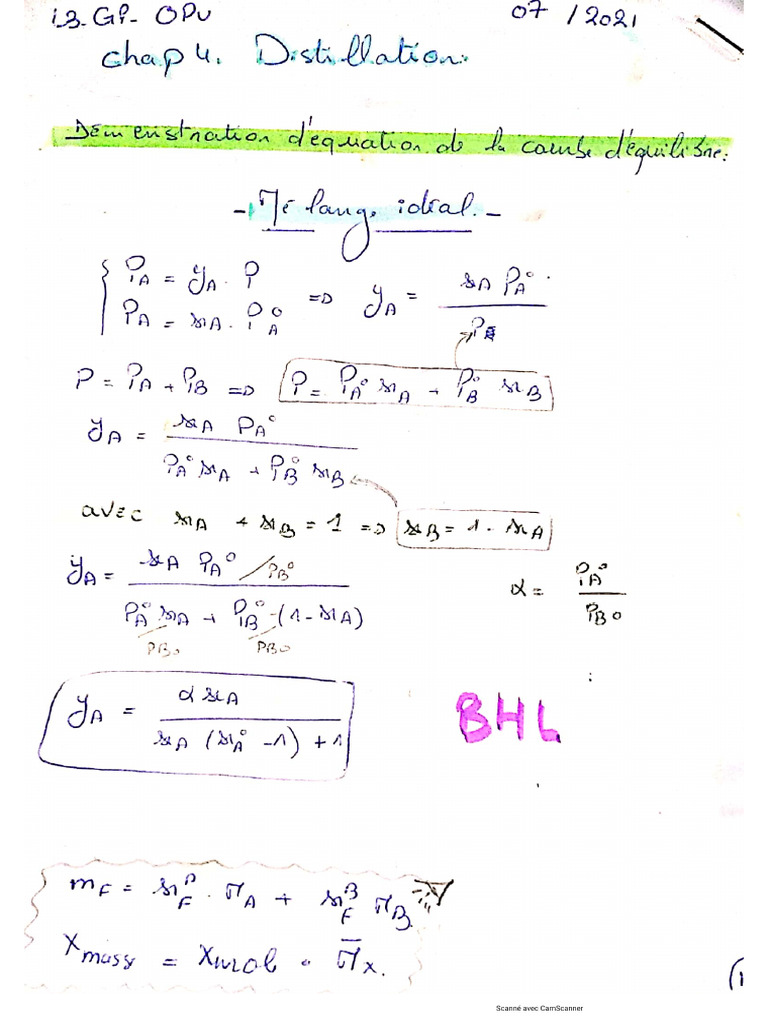 L3-GP-OPU 07/2021
chap 4. Distillation.
Démenstration d'équation de la courbe d'équilibre:
- Mélange idéal. -
{ P_A = y_A . P
P_A = x_A . P_A° => y_A = x_A P_A° / P
P = P_A + P_B => P = P_A° x_A + P_B° x_B
y_A = x_A P_A° / P_A° x_A + P_B° x_B
avec x_A + x_B = 1 => x_B = 1 - x_A
y_A = x_A P_A° / P_B° / P_A° x_A / P_B° + P_B° (1 - x_A) / P_B° α = P_A° / P_B°
y_A = α x_A / x_A (x_A° - 1) + 1
BHL
m_F = x_F^A . M_A + x_F^B M_B
X_mass = X_mol . M̄_x.
(1
Scanné avec CamScanner